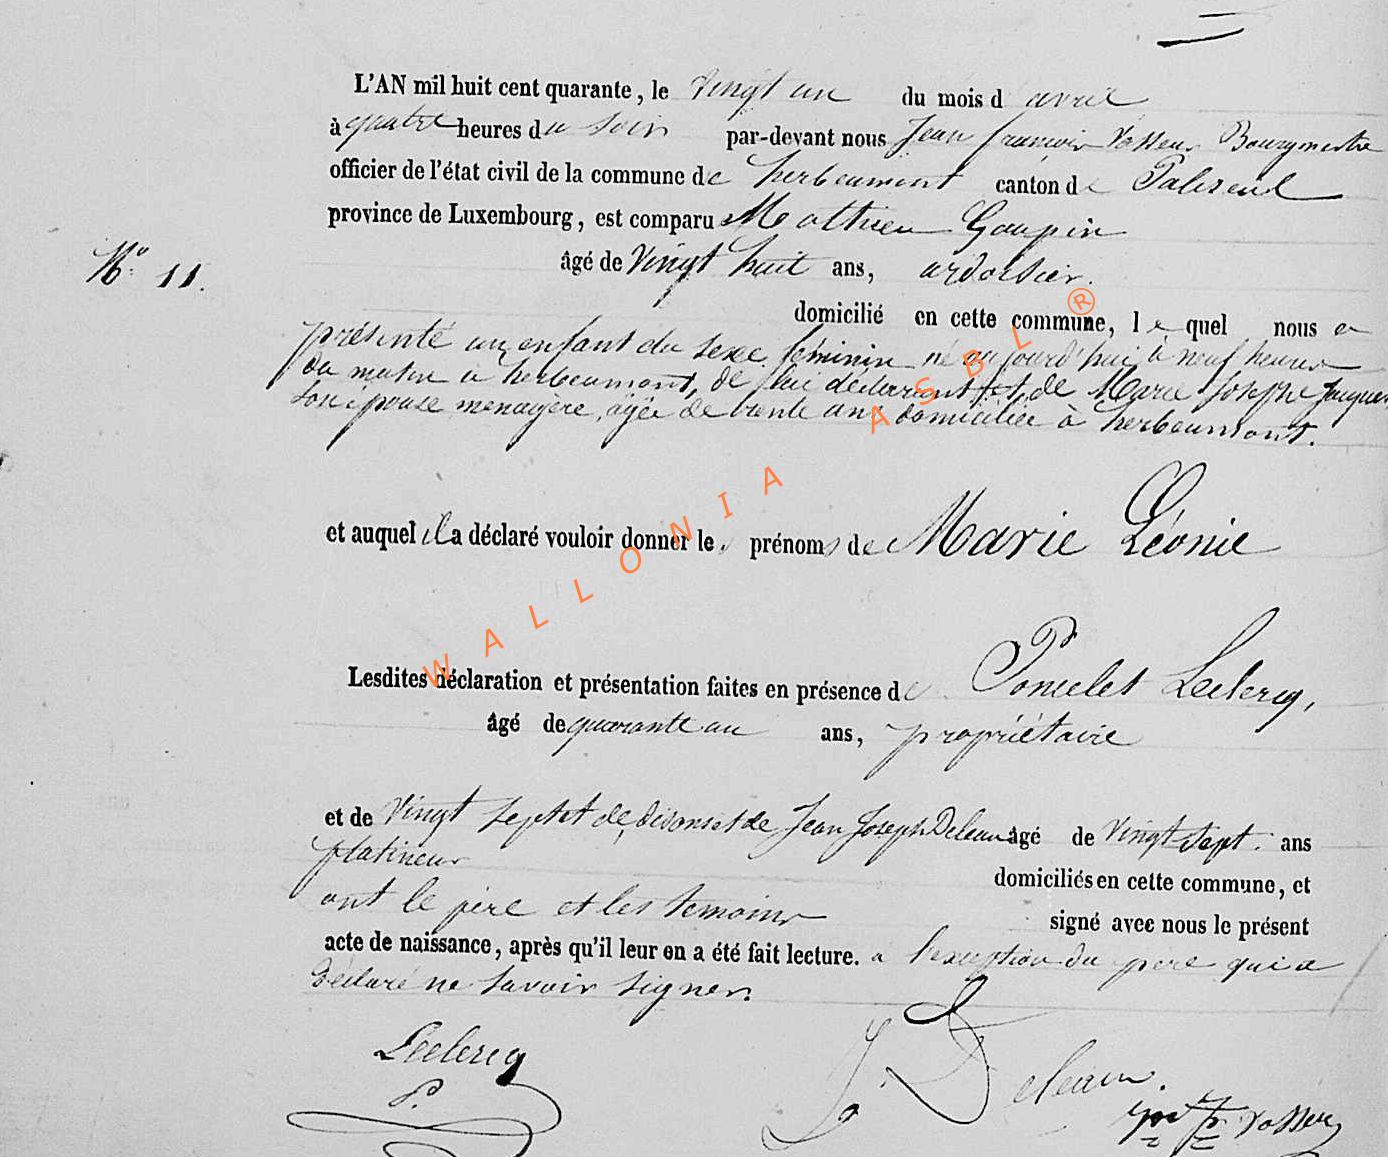 L'AN mil huit cent quarante, le vingt un du mois d avril
à quatre heures du soir par-devant nous Jean françois Vasseur Bourgmestre
officier de l'état civil de la commune de herbeumont canton de Paliseul
province de Luxembourg, est comparu Mathieu Goupin
âgé de Vingt huit ans, ardoisier.
N.º 11.
domicilié en cette commune, le quel nous a
présenté un enfant du sexe féminin né aujourd'hui à neuf heures
du matin à herbeumont, de lui déclarant et de Marie Josephe Jacques
son épouse menagère, âgée de trente ans domiciliée à herbeumont.
et auquel il a déclaré vouloir donner les prénoms de Marie Léonie
Lesdites déclaration et présentation faites en présence de Poncelet Leclercq,
âgé de quarante un ans, propriétaire
et de Vingt sept et de Jean Joseph Deleau âgé de Vingt-Sept. ans
platineur domiciliés en cette commune, et
ont le père et les temoins signé avec nous le présent
acte de naissance, après qu'il leur en a été fait lecture. a l'exception du pere qui a
déclaré ne savoir signer.
Leclercq
P.
J. Deleau.
Vasseur
WALLONIA ASBL ®